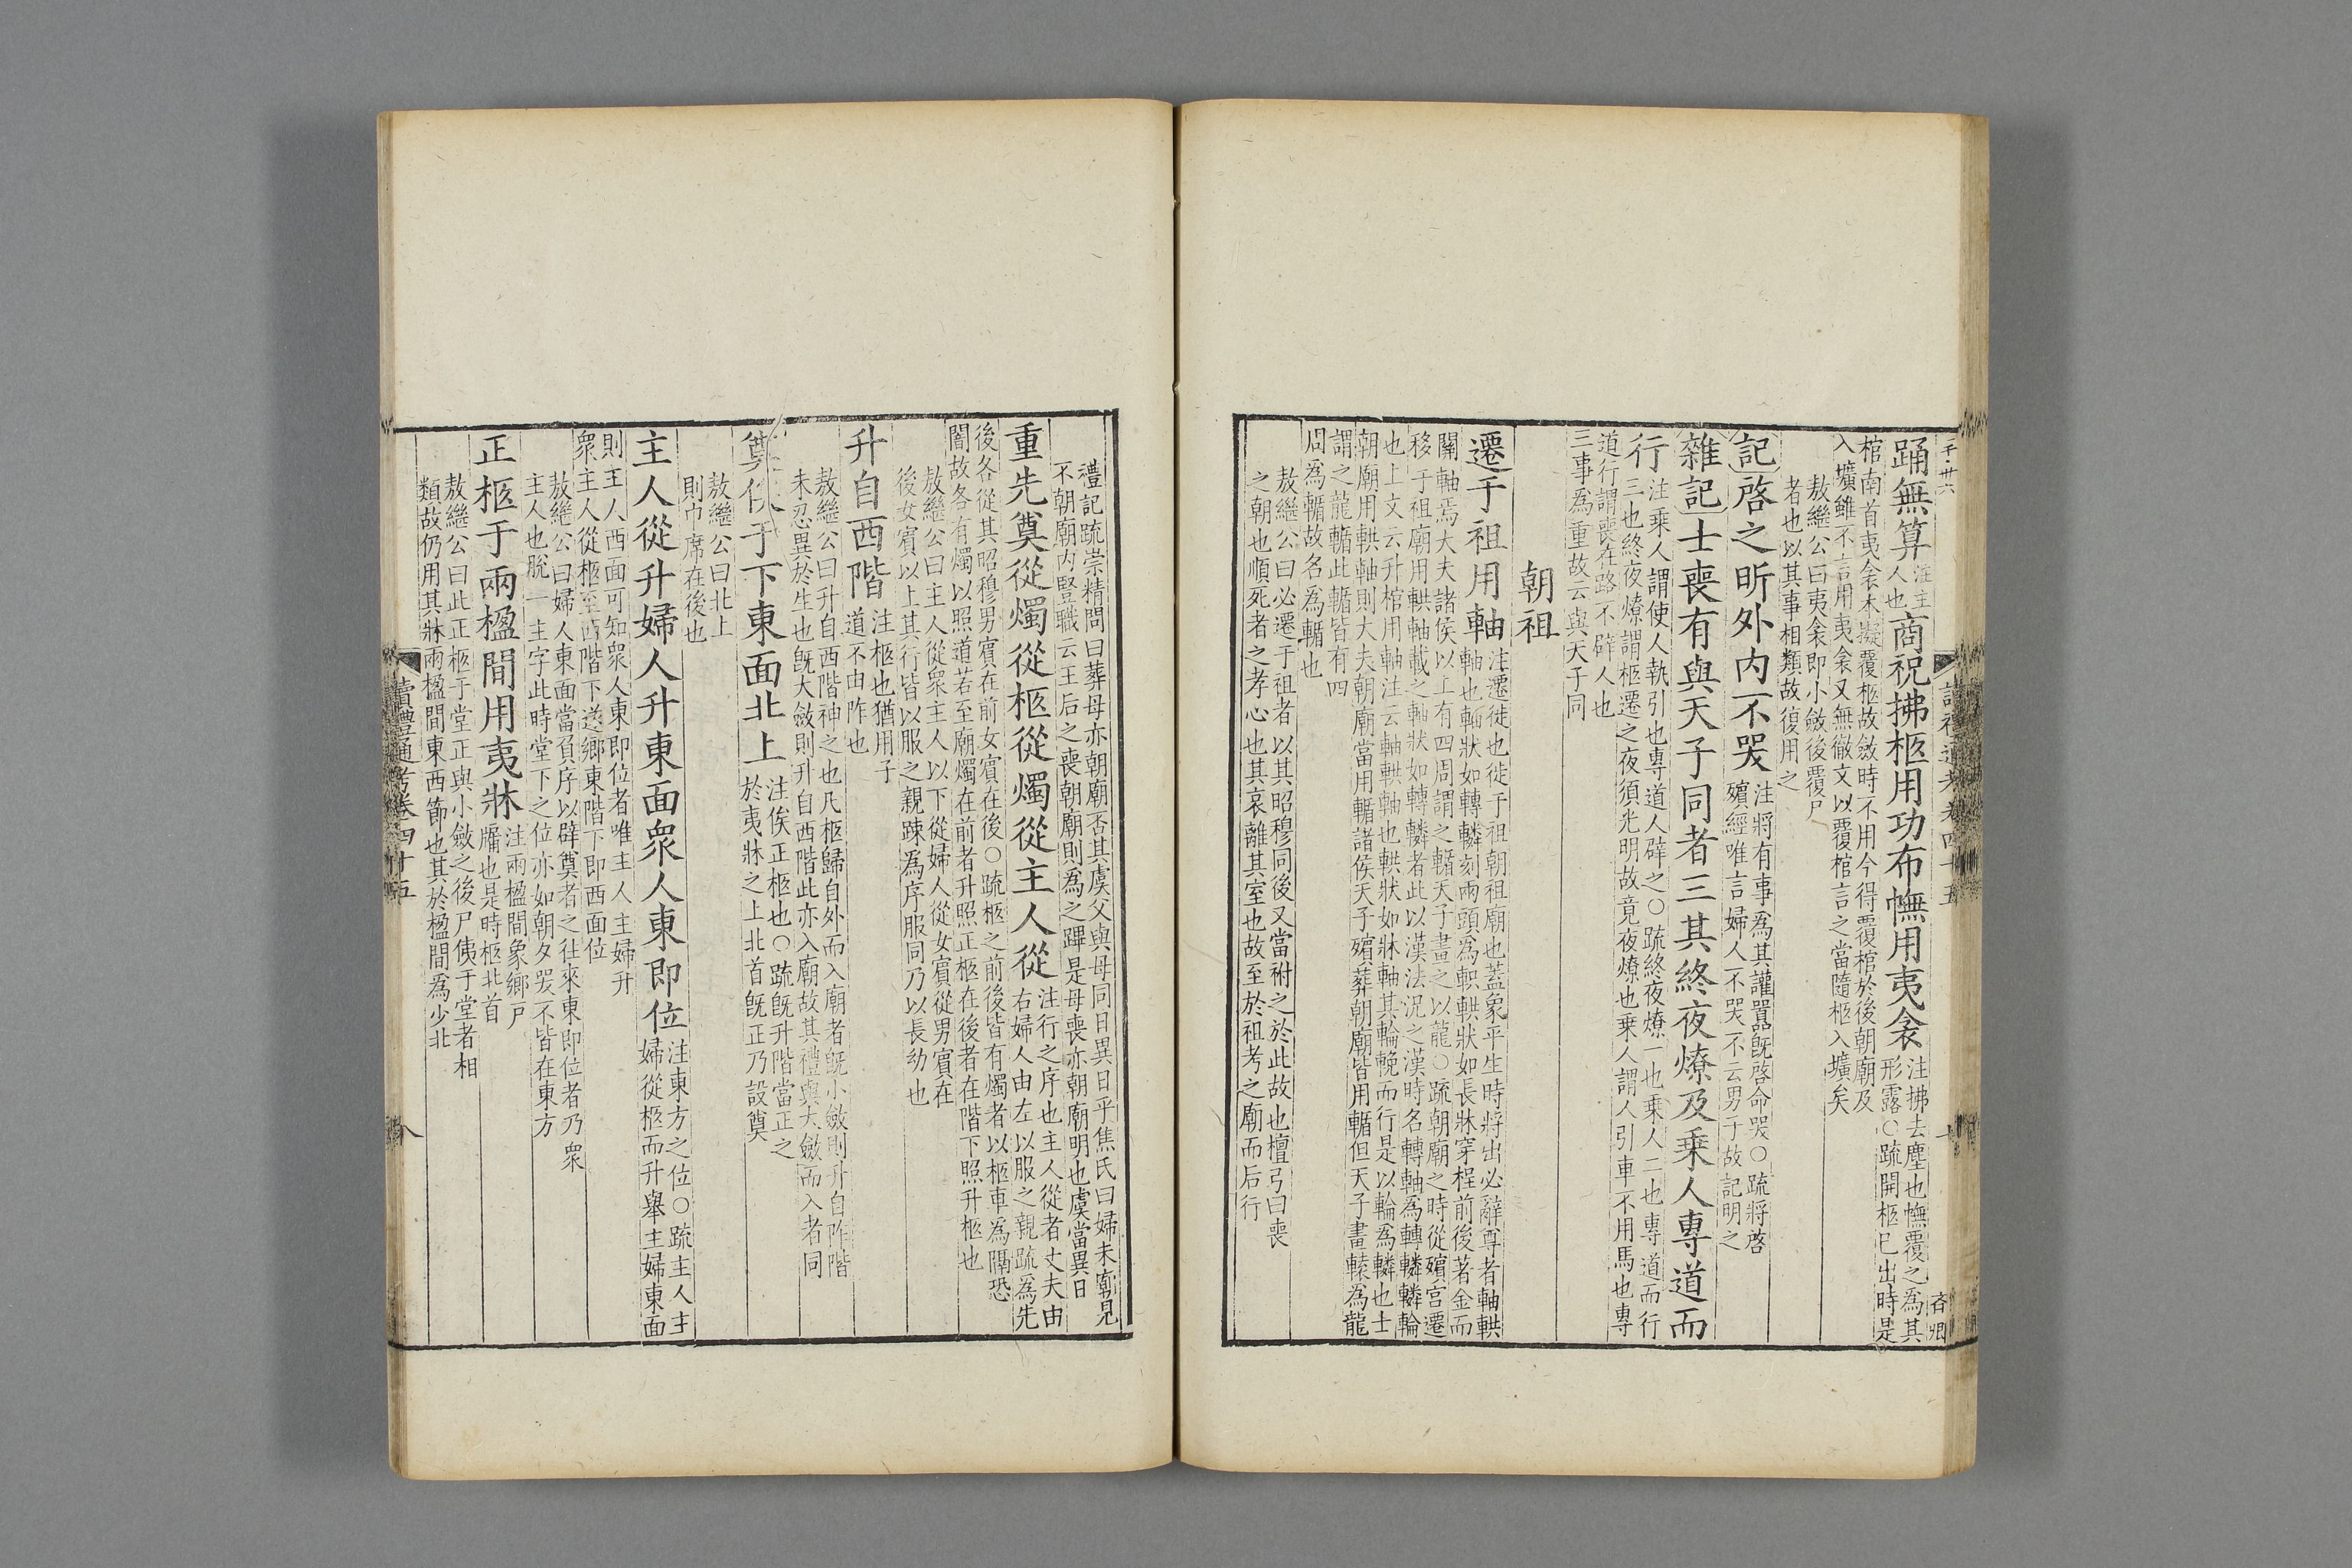 踊無算注主人也商祝拂柩用功布幠用夷衾注拂去塵也幠覆之為其形露○疏開柩已出時是
棺南首夷衾本擬覆柩故斂時不用今得覆棺於後朝廟及
入壙雖不言用夷衾又無徹文以覆棺言之當隨柩入壙矣
敖繼公曰夷衾即小斂後覆尸
者也以其事相類故復用之
記啓之昕外内不哭注將有事為其讙嚻旣啓命哭○疏將啓
殯經唯言婦人不哭不云男子故記明之
雜記士喪有與天子同者三其終夜燎及乗人專道而
行注乗人謂使人執引也專道人辟之○疏終夜燎一也乗人二也專道而行
三也終夜燎謂柩遷之夜須光明故竟夜燎也乗人謂人引車不用馬也專
道行謂喪在路不辟人也
三事為重故云與天子同
朝祖
遷于祖用軸注遷徙也徙于祖朝祖廟也蓋象平生時將出必辭尊者軸輁
軸也軸狀如轉轔刻兩頭為軹輁狀如長牀穿桯前後著金而
關軸焉大夫諸侯以上有四周謂之輴天子畫之以龍○疏朝廟之時從殯宫遷
移于祖廟用輁軸載之軸狀如轉轔者此以漢法況之漢時名轉軸為轉轔轔輪
也上文云升棺用軸注云軸輁軸也輁狀如牀軸其輪輓而行是以輪為轔也士
朝廟用輁軸則大夫朝廟當用輴諸侯天子殯葬朝廟皆用輴但天子畫轅為龍
謂之龍輴此輴皆有四
周為輴故名為輴也
敖繼公曰必遷于祖者以其昭穆同後又當祔之於此故也檀弓曰喪
之朝也順死者之孝心也其哀離其室也故至於祖考之廟而后行
禮記疏崇精問曰葬母亦朝廟否其虞父與母同日異日乎焦氏曰婦未廟見
不朝廟内豎職云王后之喪朝廟則為之蹕是母喪亦朝廟明也虞當異日
重先奠從燭從柩從燭從主人從注行之序也主人從者丈夫由
右婦人由左以服之親疏為先
後各從其昭穆男賓在前女賓在後○疏柩之前後皆有燭者以柩車為隔恐
闇故各有燭以照道若至廟燭在前者升照正柩在後者在階下照升柩也
敖繼公曰主人從衆主人以下從婦人從女賓從男賓在
後女賓以上其行皆以服之親踈為序服同乃以長幼也
升自西階注柩也猶用子
道不由阼也
敖繼公曰升自西階神之也凡柩歸自外而入廟者旣小斂則升自阼階
未忍異於生也旣大斂則升自西階此亦入廟故其禮與大斂而入者同
奠俟于下東面北上注俟正柩也○疏旣升階當正之
於夷牀之上北首旣正乃設奠
敖繼公曰北上
則巾席在後也
主人從升婦人升東面衆人東即位注東方之位○疏主人主
婦從柩而升舉主婦東面
則主人西面可知衆人東即位者唯主人主婦升
衆主人從柩至西階下遂鄉東階下即西面位
敖繼公曰婦人東面當負序以辟奠者之往來東即位者乃衆
主人也脫一主字此時堂下之位亦如朝夕哭不皆在東方
正柩于兩楹間用夷牀注兩楹間象鄉尸
牖也是時柩北首
敖繼公曰此正柩于堂正與小斂之後尸侇于堂者相
類故仍用其牀兩楹間東西節也其於楹間為少北
讀禮通考卷四十五
八